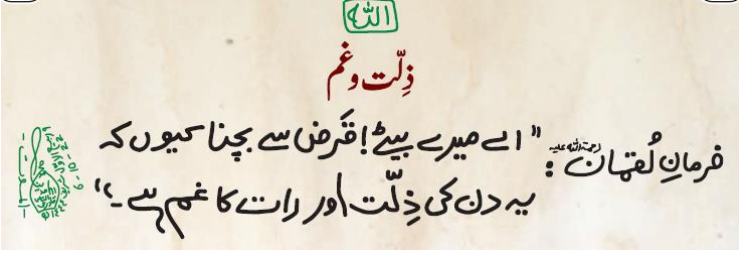 الله
ذِلّت و غم
فرمانِ لُقمان رحمۃ اللہ علیہ : "اے میرے بیٹے! قَرض سے بچنا کیوں کہ
یہ دن کی ذِلّت اور رات کا غم ہے ۔"